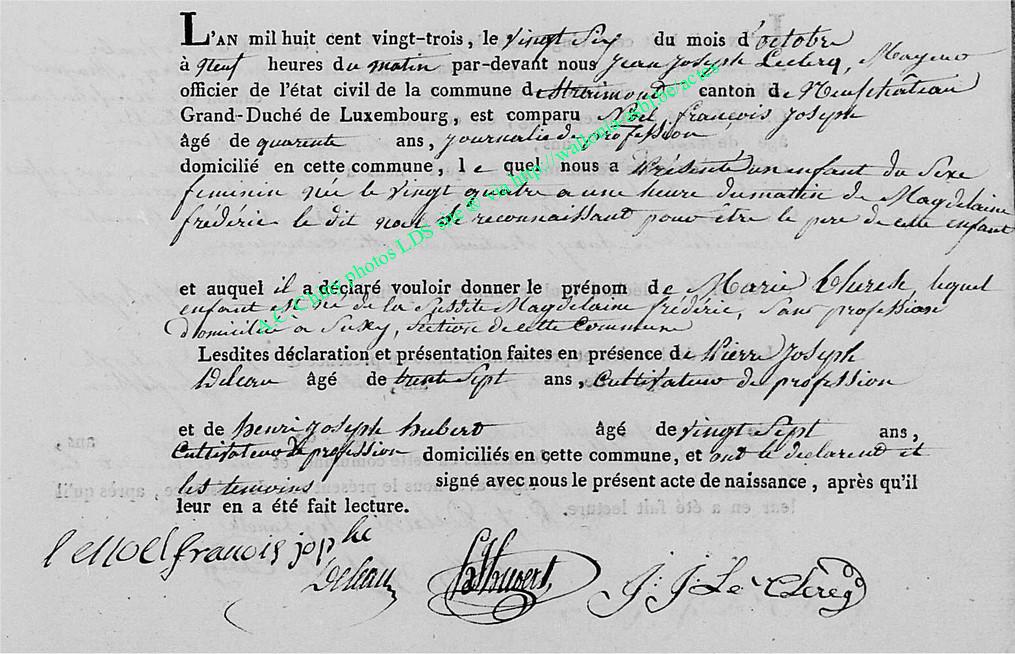 L'AN mil huit cent vingt-trois, le vingt Six du mois d'octobre
à Neuf heures du matin par-devant nous Jean Joseph Leclerq, Mayeur
officier de l'état civil de la commune de Straimont canton de Neufchâteau
Grand-Duché de Luxembourg, est comparu Noel françois Joseph
âgé de quarente ans, journalie de profession
domicilié en cette commune, le quel nous a Présenté un enfant du Sexe
feminin née le vingt quatre a une heure du matin de Magdelaine
frédéric le dit noel Se reconnaissant pour être le pere de cette enfant
et auquel il a déclaré vouloir donner le prénom de Marie Therese, lequel
enfant est né de la Susdite Magdelaine frédéric, Sans profession
domicilié à Suxy, Section de cette Commune
Lesdites déclaration et présentation faites en présence de Pierre Joseph
Deleau âgé de trente Sept ans, Cultivateur de profession
et de henri joseph hubert âgé de vingt Sept ans,
Cultivateur de profession domiciliés en cette commune, et ont le déclarent et
les temoins signé avec nous le présent acte de naissance, après qu'il
leur en a été fait lecture.
le noel francois joph
Deleau hJhubert J: J: Le Clereq
A.C. Chiny photos LDS site ® via http://wallonia-asbl.be/actes